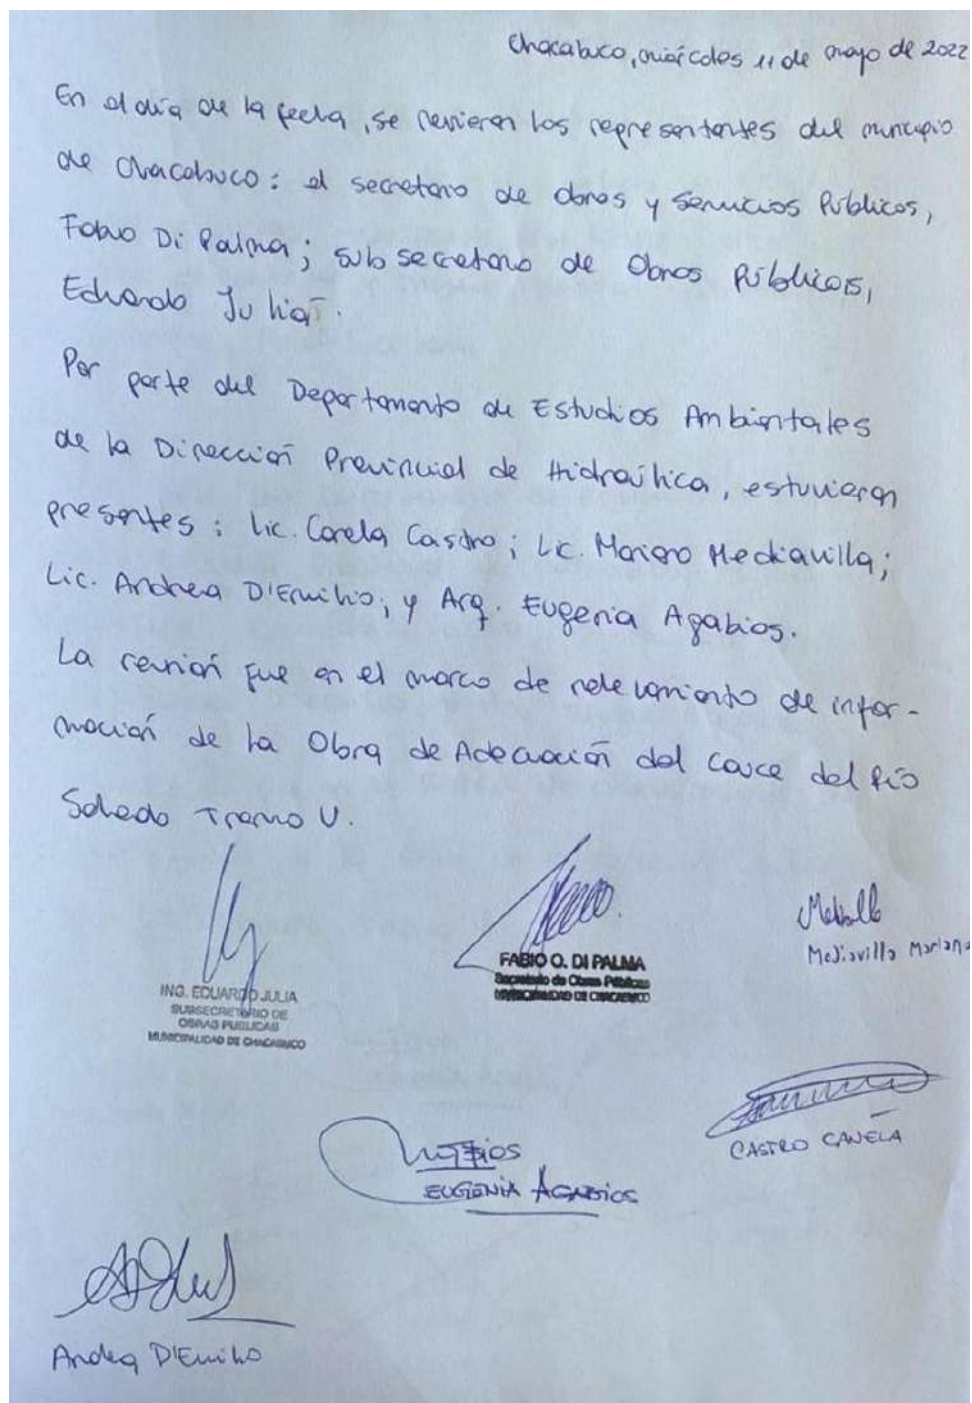 Chacabuco, miércoles 11 de mayo de 2022
En el día de la fecha, se reunieron los representantes del municipio
de Chacabuco: el secretario de Obras y Servicios Públicos,
Fabio Di Palma; subsecretario de Obras Públicas,
Eduardo Juliá.
Por parte del Departamento de Estudios Ambientales
de la Dirección Provincial de Hidraúlica, estuvieron
presentes: Lic. Canela Castro; Lic. Mariano Mediavilla;
Lic. Andrea D'Emilio; y Arq. Eugenia Agabios.
La reunión fue en el marco de relevamiento de infor-
mación de la Obra de Adecuación del cauce del Río
Salado Tramo V.
FABIO O. DI PALMA
Secretario de Obras Públicas
MUNICIPALIDAD DE CHACABUCO
Mediavilla Mariano
ING. EDUARDO JULIA
SUBSECRETARIO DE
OBRAS PUBLICAS
MUNICIPALIDAD DE CHACABUCO
CASTRO CANELA
EUGENIA AGABIOS
Andrea D'Emilio